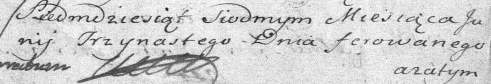 Siedmdziesiąt Siodmym Miesiąca Ju
nij Trzynastego Dnia ferowanego
aratym